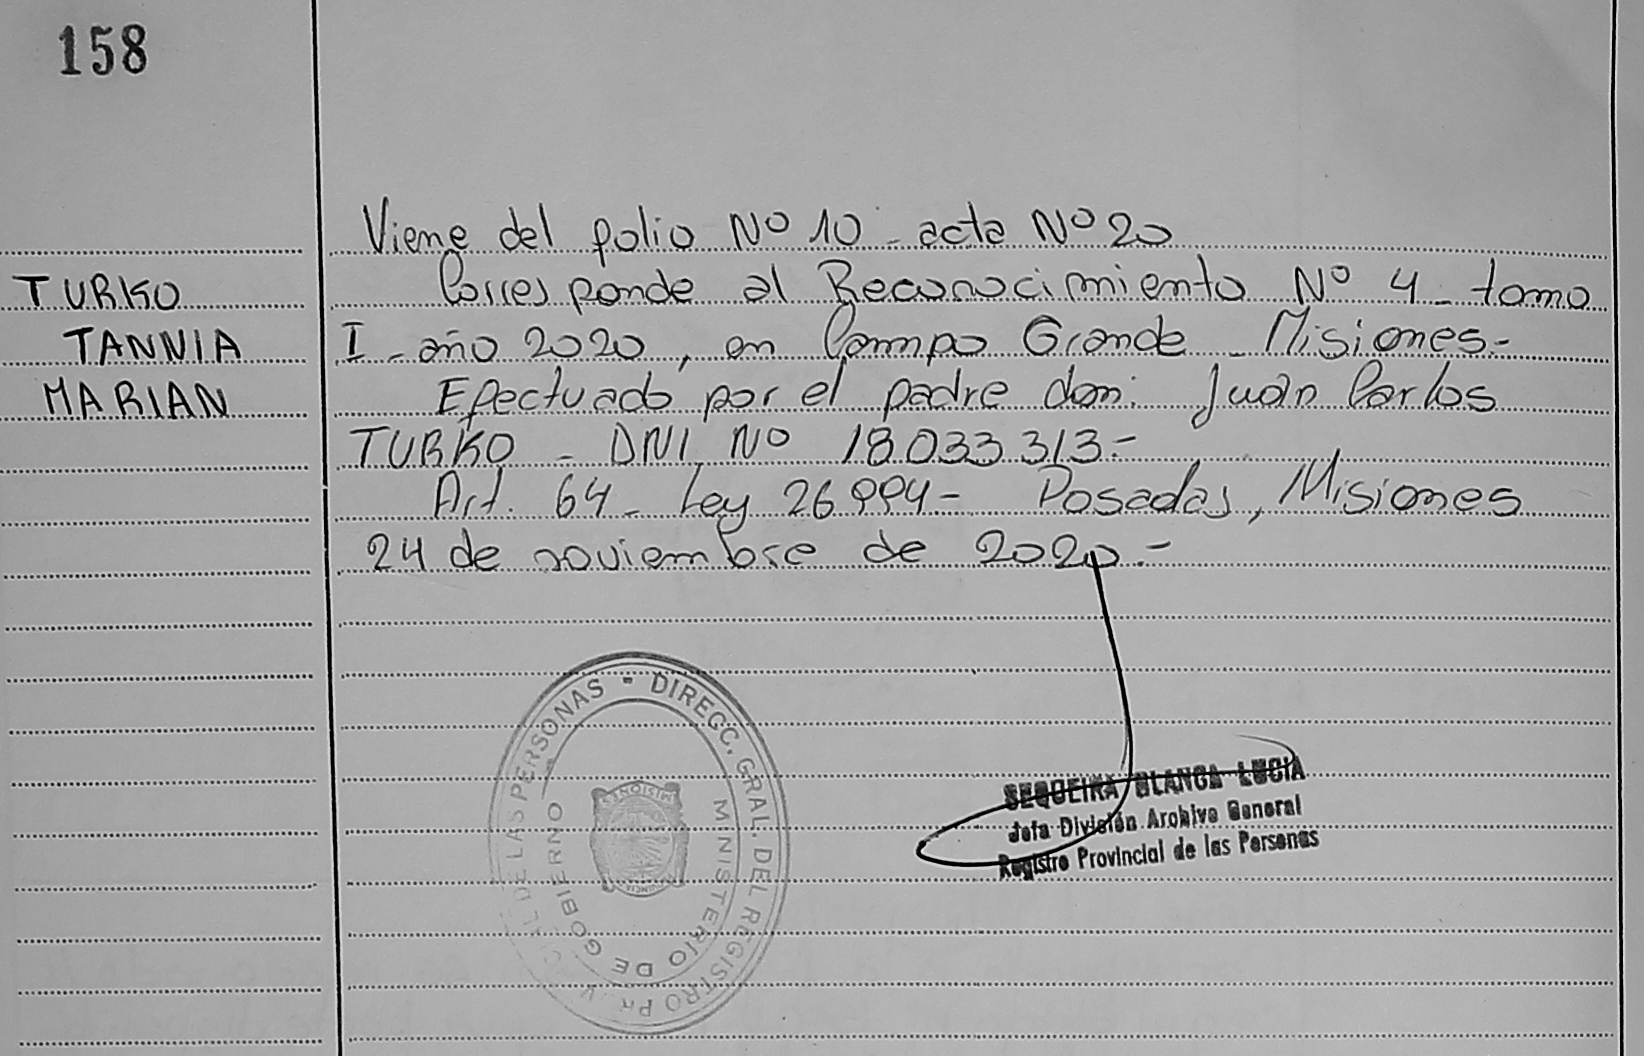 158
Viene del folio Nº 10 - acta Nº 20
TURKO
Corresponde al Reconocimiento Nº 4 - tomo
TANNIA
I - año 2020, en Campo Grande - Misiones.-
MARIAN
Efectuado por el padre don: Juan Carlos
TURKO - DNI Nº 18.033.313.-
Art. 64 - Ley 26.994 - Posadas, Misiones
24 de noviembre de 2020.-
DIRECC. GRAL. DEL REGISTRO PROVINCIAL DE LAS PERSONAS
MINISTERIO DE GOBIERNO
MISIONES
PROVINCIA
SEQUEIRA BLANCA LUCIA
Jefa División Archivo General
Registro Provincial de las Personas